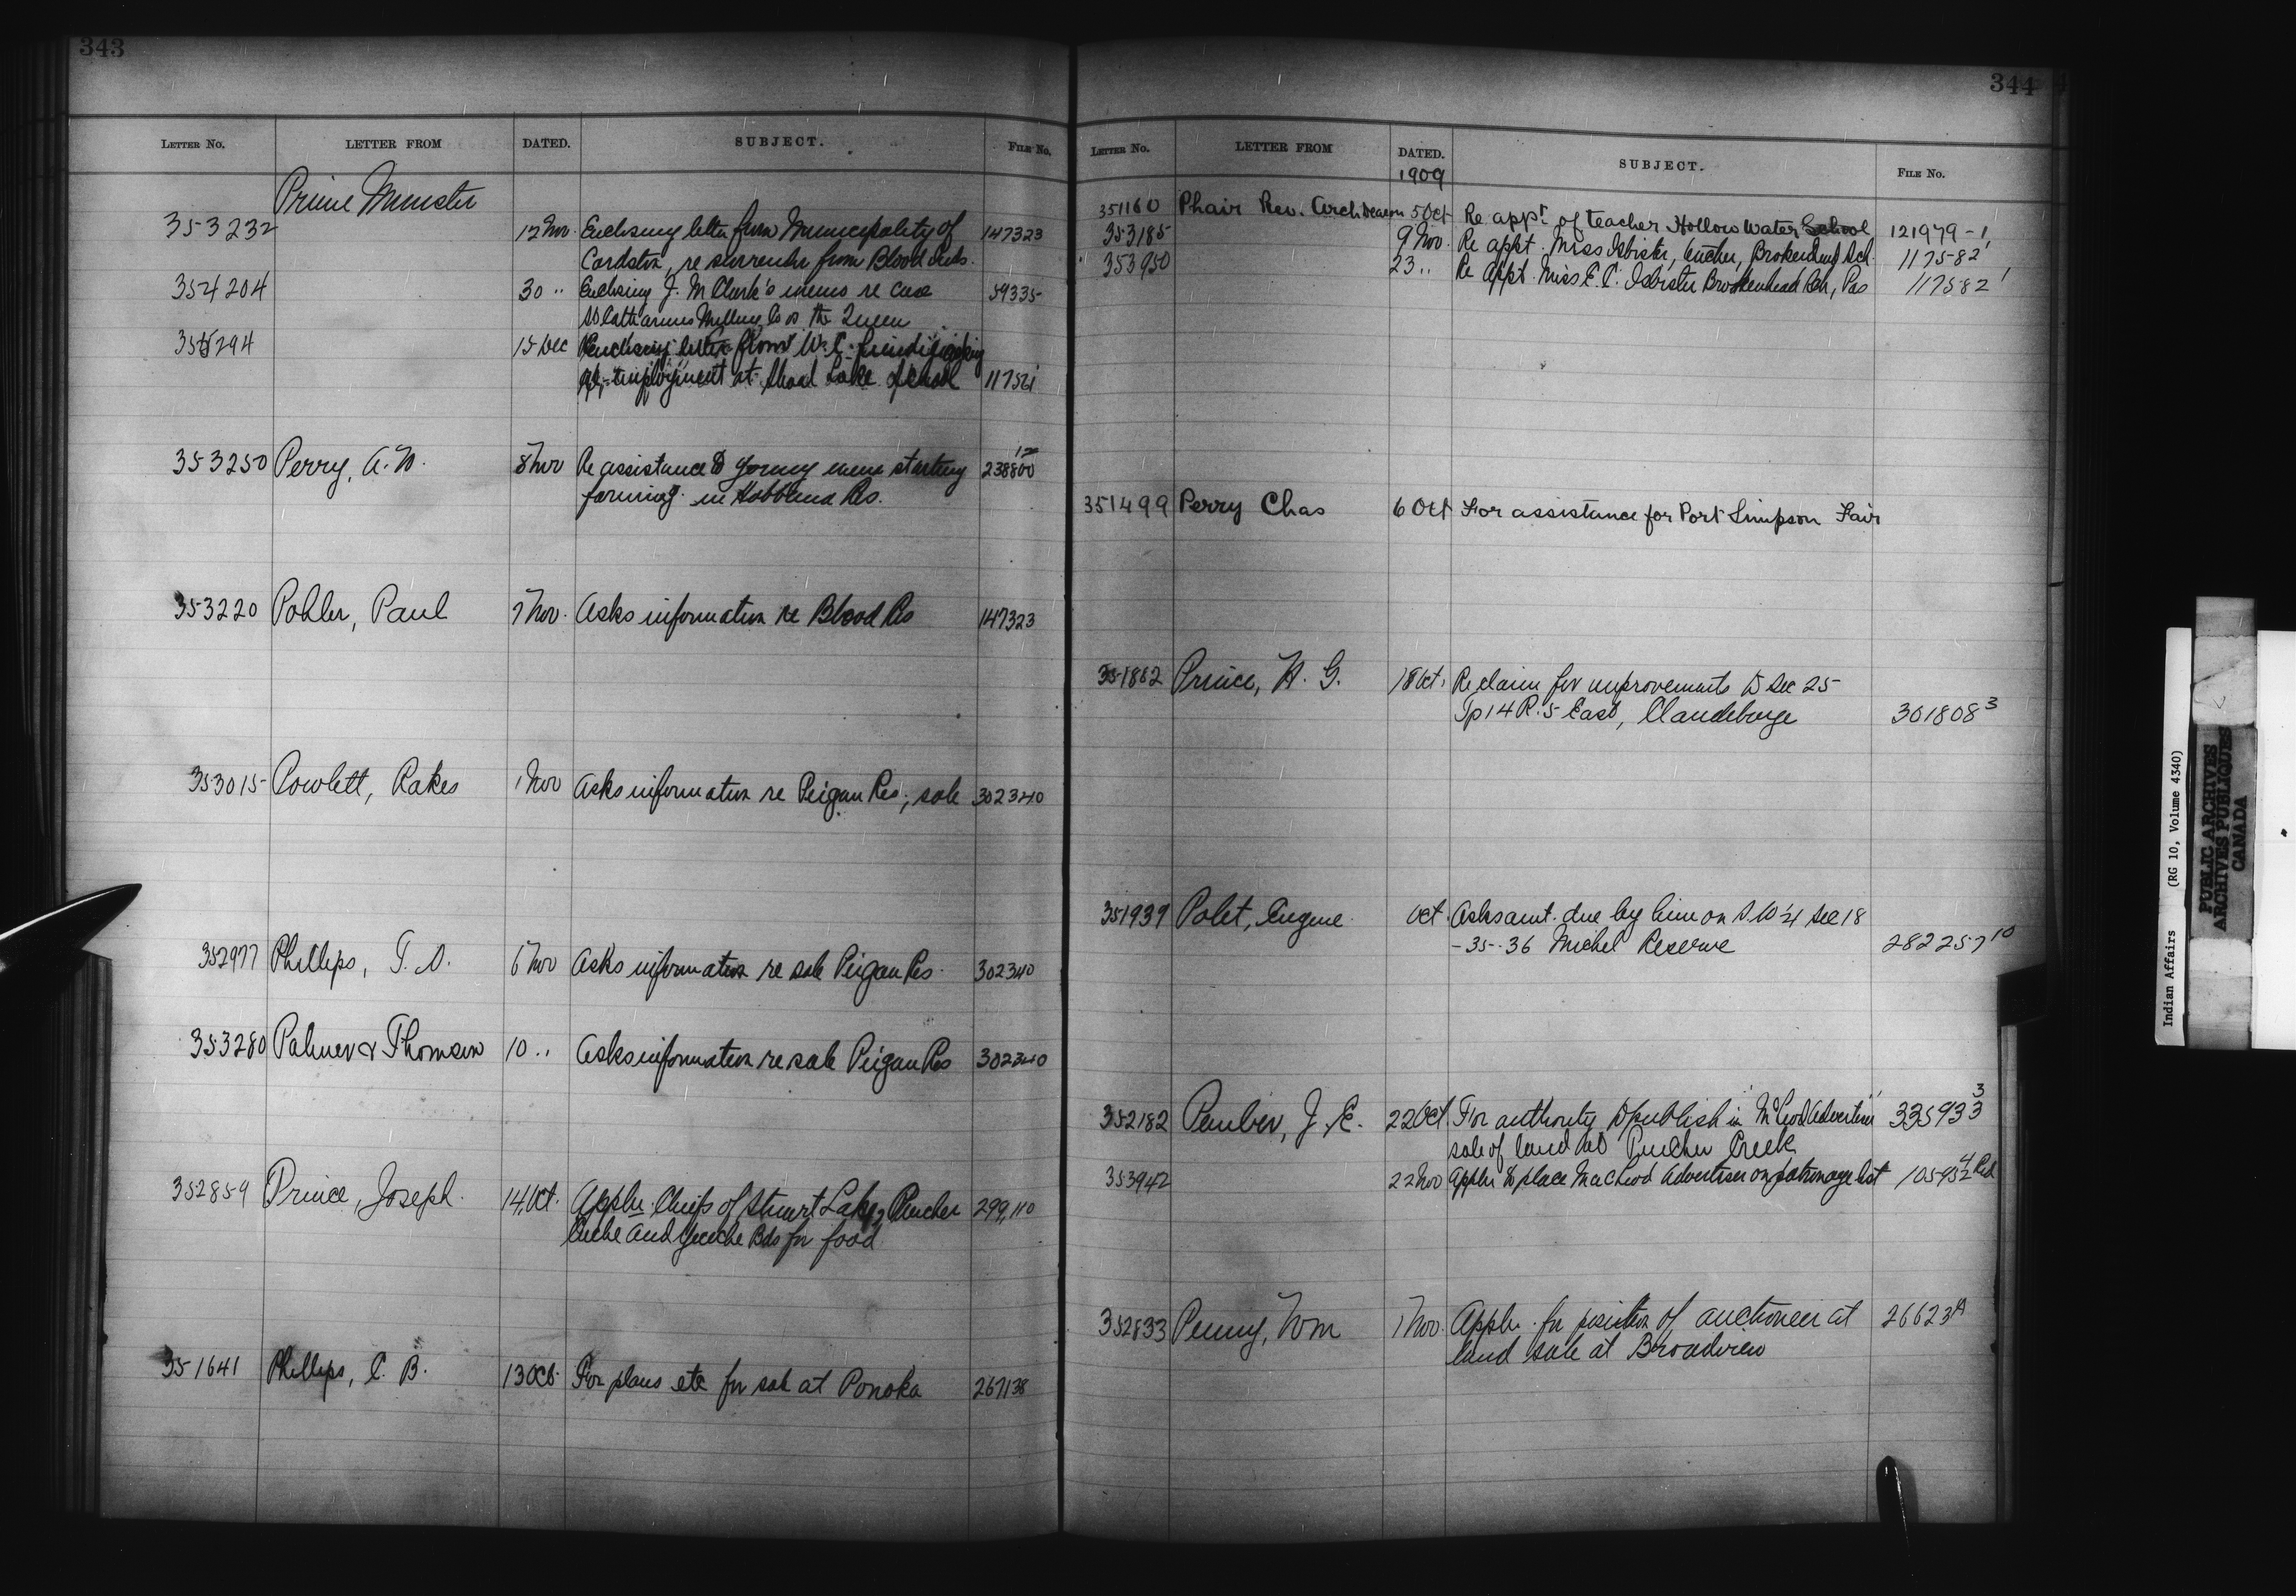 343
LETTER NO. LETTER FROM DATED. SUBJECT. FILE NO.
Prime Minister
353232 12 Nov. Enclosing letter from Municipality of 147323
Cardston, re surrender from Blood Inds.
354204 30 " Enclosing J. M Clark's memo re case 59335
St Catharines Milling Co vs the Queen
355294 15 Dec Enclosing letter from W. C.
re employment at Shoal Lake School 11756
353250 Perry, A. W. 8 Nov Re assistance to young men starting 238800
farming in Hobbema Res.
353220 Pohler, Paul 7 Nov. Asks information re Blood Res 147323
353015 Powlett, Rakes 1 Nov Asks information re Peigan Res, sale 302340
352977 Phillips, T. D. 6 Nov Asks information re sale Peigan Res. 302340
353280 Palmer & Thomson 10 " Asks information re sale Peigan Res 302340
352859 Prince, Joseph. 14 Oct. Appln Chiefs of Stuart Lake, 299,110
and Bds for food
351641 Phillips, C. B. 13 Oct. For plans etc for sale at Ponoka 267138
344
LETTER NO. LETTER FROM DATED. SUBJECT. FILE NO.
1909
351160 Phair Rev. Archdeacon 5 Oct Re appt of teacher Hollow Water School 121979-1
353185 9 Nov. Re appt. Miss Isbister, teacher, Brokenhead Sch. 117582 1
353950 23 " Re appt. Miss E. C. Isbister Brokenhead Sch, Pas 117582 1
351499 Perry Chas 6 Oct For assistance for Port Simpson Fair
351862 Prince, H. G. 18 Oct. Re claim for improvements to Sec 25
Tp 14 R. 5 East, Clandeboye 301808 3
351939 Polet, Eugene. Oct. Asks amt. due by him on S. W 1/4 Sec 18
- 35 - 36 Michel Reserve 282257 10
352182 Pember, J. E. 22 Oct. For authority to publish in "McLeod Advertiser" 335933 3
sale of land at Pincher Creek
353942 22 Nov Appln to place MacLeod Advertiser on patronage list 105952 4 Red
352833 Penny, Wm 1 Nov. Appln. for position of auctioneer at 26623 A
land sale at Broadview
Indian Affairs (RG 10, Volume 4340)
PUBLIC ARCHIVES
ARCHIVES PUBLIQUES
CANADA